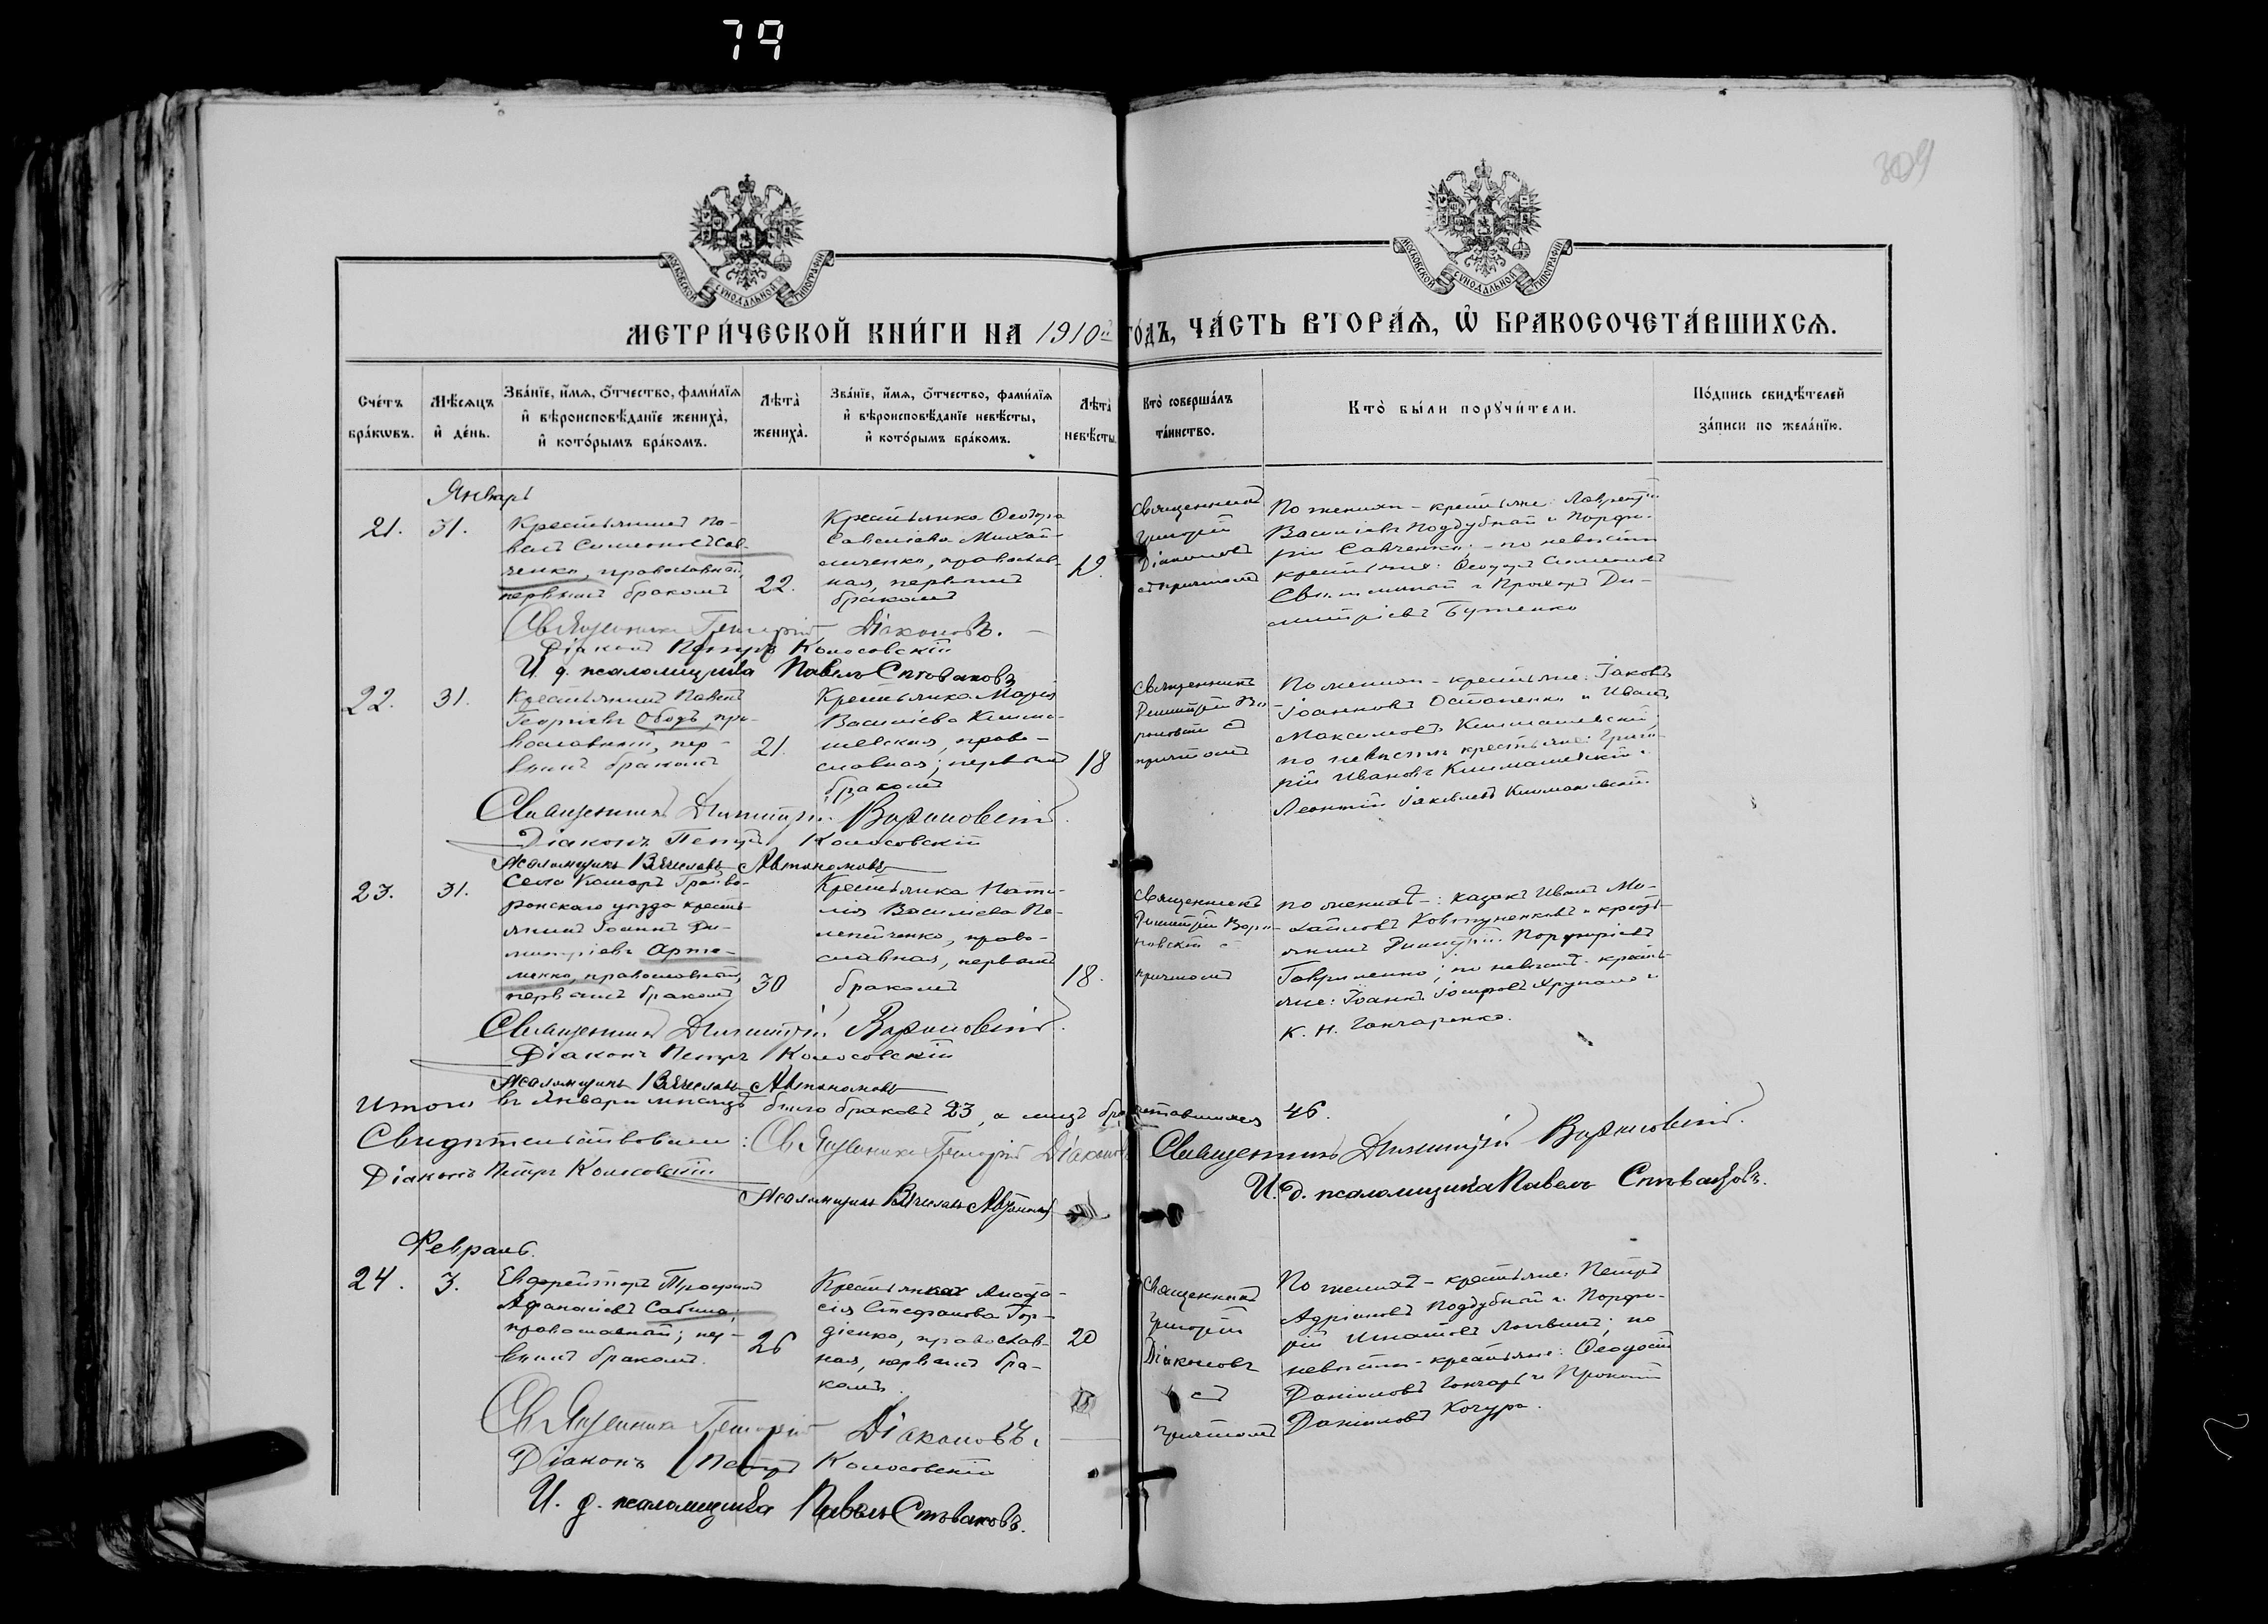 79
309
МОСКОВСКОЙ СѴНОДАЛЬНОЙ ТИПОГРАФІИ
МОСКОВСКОЙ СѴНОДАЛЬНОЙ ТИПОГРАФІИ
МЕТРИ́ЧЕСКОЙ КНИ́ГИ НА 1910й ГО́ДЪ, ЧА́СТЬ ВТОРА́Ѧ, Ѽ БРАКОСОЧЕТА́ВШИХСѦ.
Сче́тъ бра́кѡвъ.
Мѣ́сѧцъ и҆ де́нь.
Зва́нїе, и҆́мѧ, ѻ҆́тчество, фами́лїѧ и҆ вѣроисповѣ́данїе жениха̀, и҆ кото́рымъ бра́комъ.
Лѣта̀ жениха̀.
Зва́нїе, и҆́мѧ, ѻ҆́тчество, фами́лїѧ и҆ вѣроисповѣ́данїе невѣ́сты, и҆ кото́рымъ бра́комъ.
Лѣта̀ невѣ́сты.
Кто̀ соверша́лъ та́инство.
Кто̀ бы́ли порꙋчи́тели.
По́дпись свидѣ́телей за́писи по жела́нїю.
Январь
21.
31.
Крестьянинъ Па-
велъ Симеоновъ Сав-
ченко, православный,
первымъ бракомъ
22.
Крестьянка Ѳеодора
Савеліева Михай-
личенко, православ-
ная, первымъ
бракомъ
Священникъ
Григорій
Діаконовъ
съ причтомъ
По женихѣ - крестьяне: Лаврентій
Василіевъ Поддубный и Порфи-
рій Савченко; - по невѣстѣ
крестьяне: Ѳеодоръ Симеоновъ
и Прохоръ Ди-
митріевъ Бутенко
Священникъ Григорій Діаконовъ.
Діаконъ Петръ Колосовскій
И. д. псаломщика Павелъ Стовановъ
22.
31.
Крестьянинъ Павелъ
Георгіевъ Ободъ, пра-
вославный, пер-
вымъ бракомъ
21.
Крестьянка Марія
Василіева Кишма-
шевская, право-
славная; первымъ
бракомъ
18
Священникъ
Димитрій Во-
роновскій съ
причтомъ
По женихѣ - крестьяне: Іаковъ
Іоанновъ Остапенко и Иванъ
Максимовъ
по невѣстѣ крестьяне: Григо-
рій Ивановъ
Леонтій Іаковлевъ
Священникъ Димитрій Вороновскій.
Діаконъ Петръ Колосовскій
Псаломщикъ Вячеславъ Автономовъ
23.
31.
Села Комаръ Грайво-
ронскаго уѣзда кресть-
янинъ Іоаннъ Ди-
митріевъ Арте-
менко, православный,
первымъ бракомъ
30
Крестьянка Ната-
лія Василіева Пе-
лепченко, право-
славная, первымъ
бракомъ
18.
Священникъ
Димитрій Воро-
новскій съ
причтомъ
по женихѣ -: казакъ Иванъ Ми-
хайловъ Ковтуненковъ и кресть-
янинъ Димитрій Порфиріевъ
Гавриленко; по невѣстѣ - кресть-
яне: Іоаннъ Іосифовъ Хрупало и
К. Н. Гончаренко.
Священникъ Димитрій Вороновскій.
Діаконъ Петръ Колосовскій
Псаломщикъ Вячеславъ Автономовъ
Итого въ Январѣ мѣсяцѣ было браковъ 23, а лицъ бракосочетавшихся 46.
Свидѣтельствовали: Священникъ Григорій Діаконовъ Священникъ Димитрій Вороновскій.
Діаконъ Петръ Колосовскій
Псаломщикъ Вячеславъ Автономовъ
И. д. псаломщика Павелъ Стовановъ.
Февраль.
24.
3.
Ефрейторъ Трофимъ
Аѳанасіевъ Сабина,
православный; пер-
вымъ бракомъ.
26
Крестьянка Анаста-
сія Стефанова Гор-
діенко, православ-
ная, первымъ бра-
комъ.
20
Священникъ
Григорій
Діаконовъ
съ
причтомъ
По женихѣ - крестьяне: Петръ
Адріановъ Поддубный и Порфи-
рій Игнатовъ Литвинъ; по
невѣстѣ - крестьяне: Ѳеодосій
Даніиловъ Гончаръ и Прокопій
Даніиловъ Кочура.
Священникъ Григорій Діаконовъ.
Діаконъ Петръ Колосовскій
И. д. псаломщика Павелъ Стовановъ.